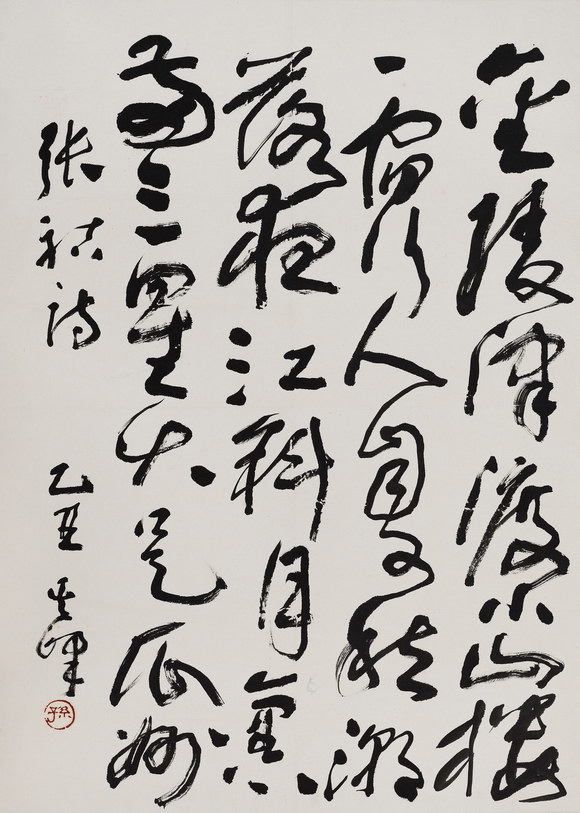 金陵津渡小山楼
一宿行人自可愁潮
落夜江斜月裏
两三星火是瓜州
张祜诗 乙丑 其峰
孙